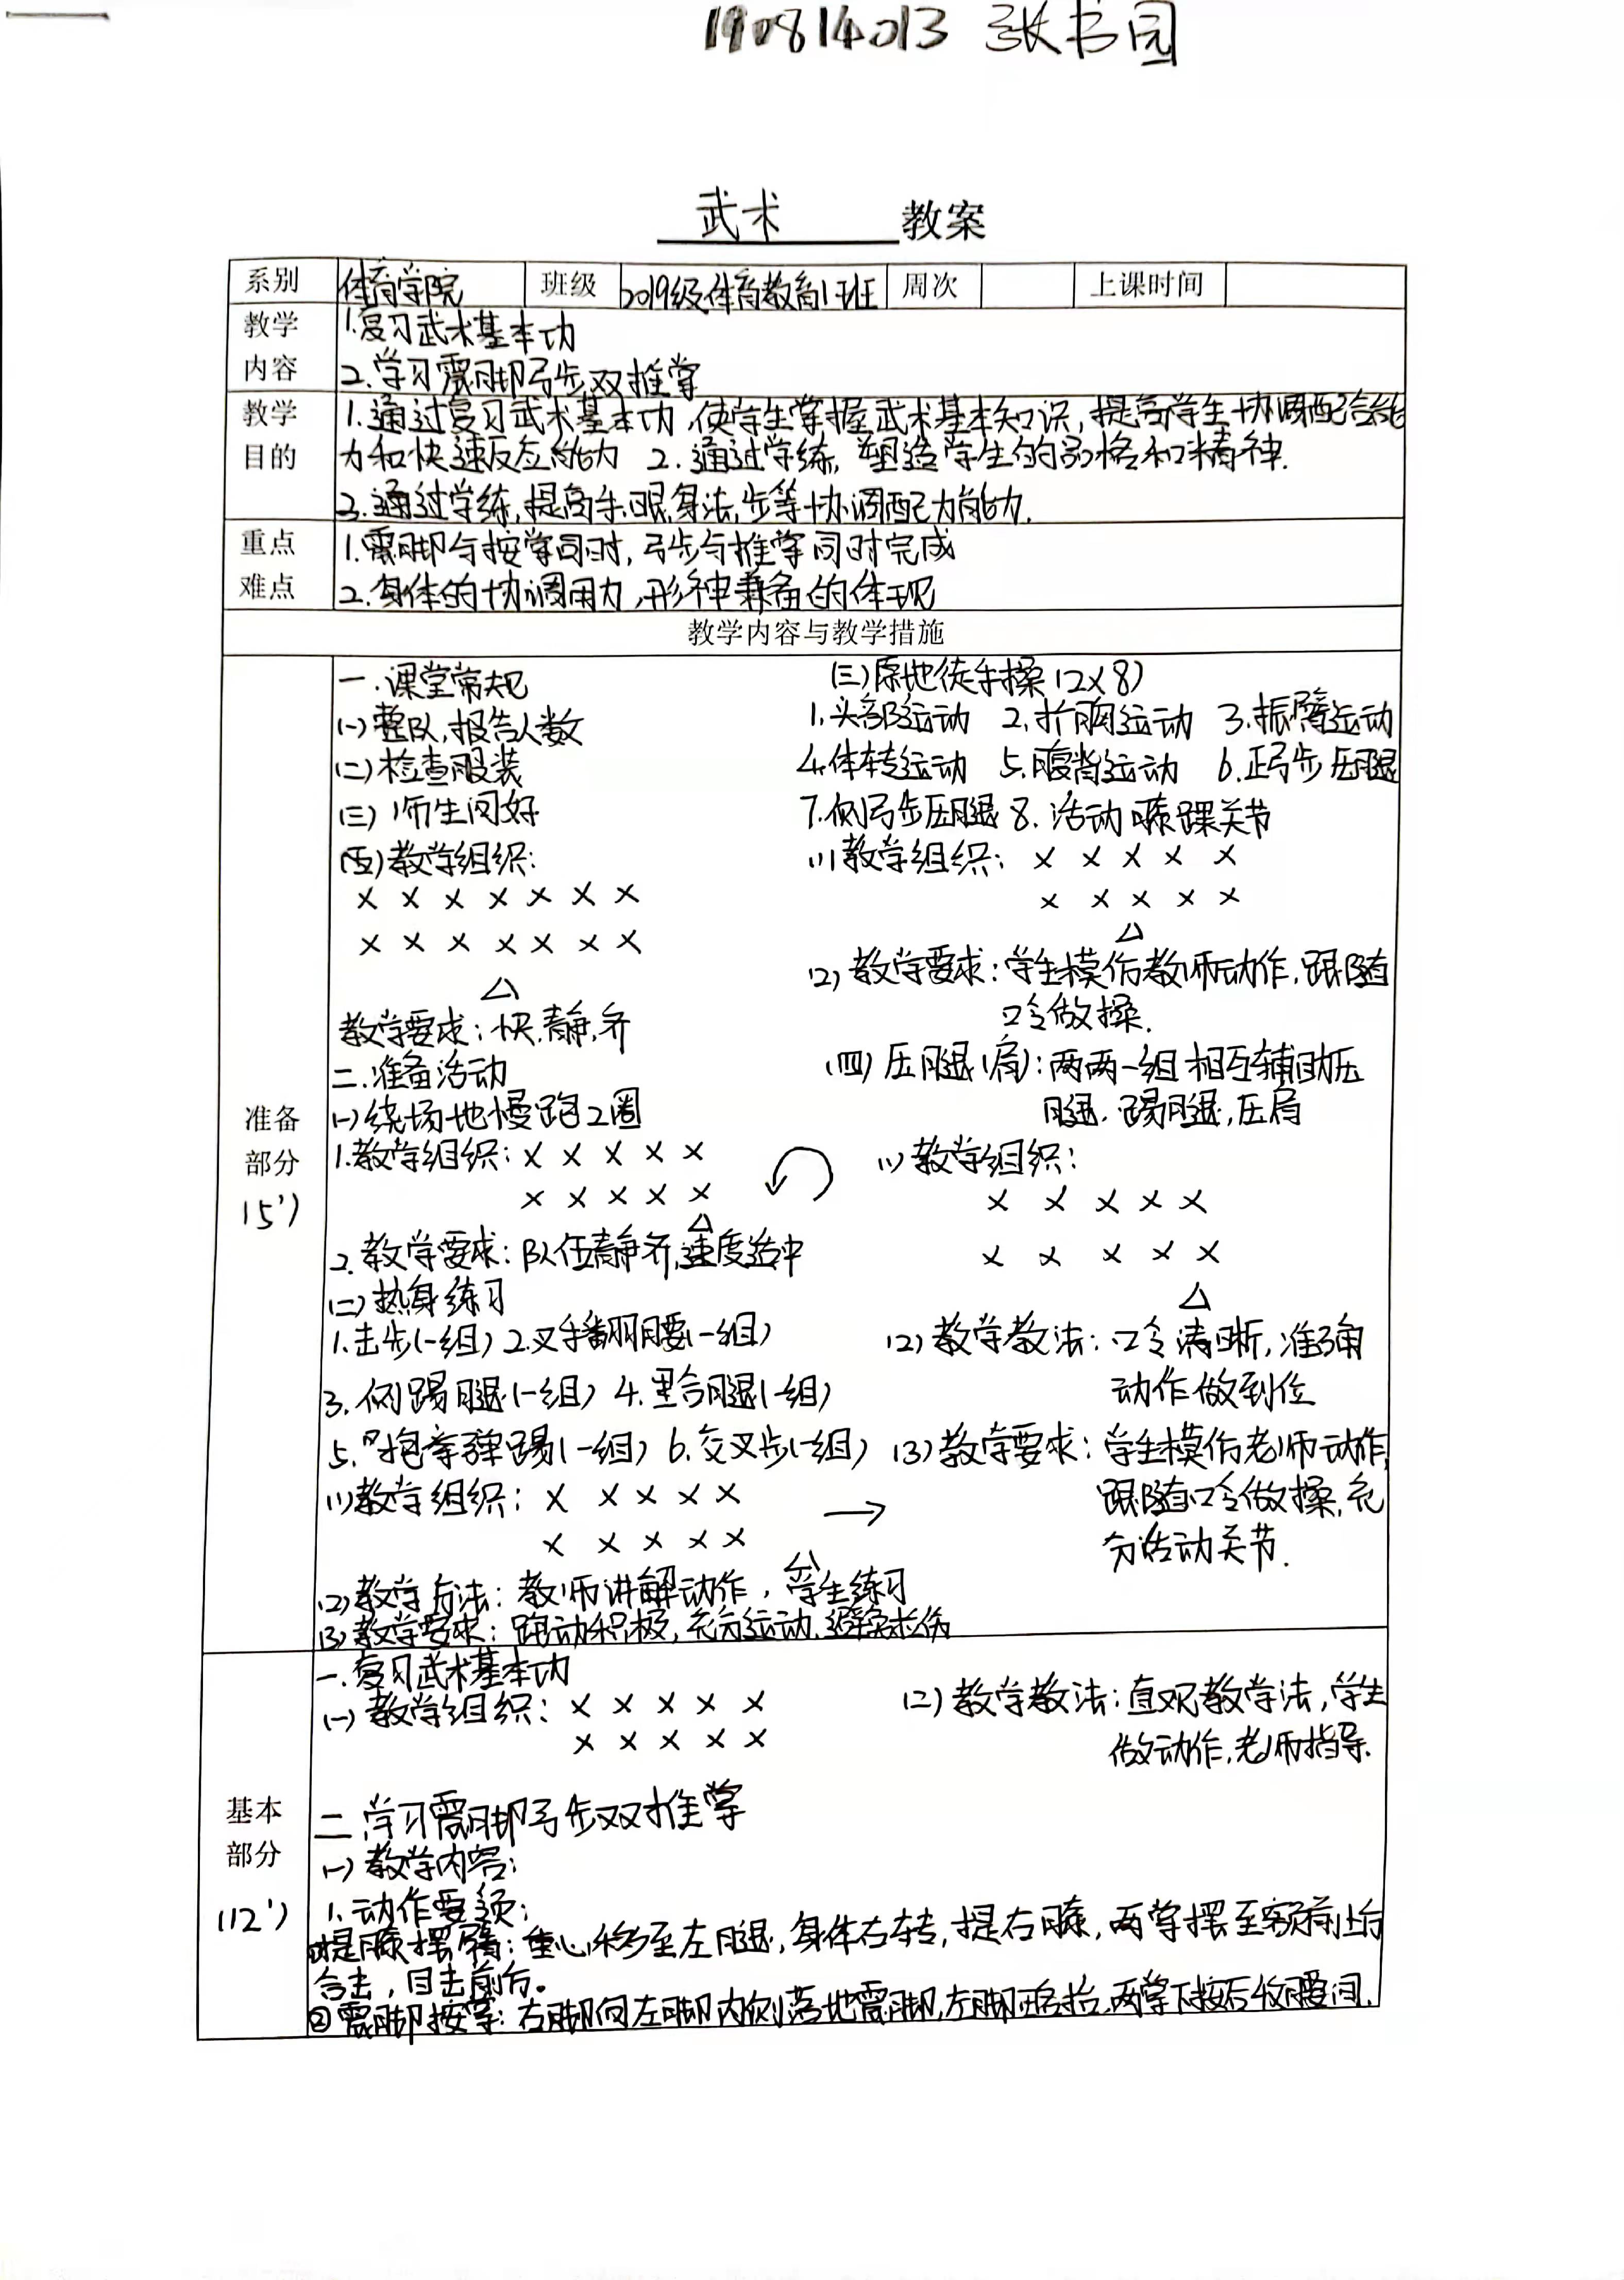 190814013 张书园
武术 教案
系别 体育学院 班级 2019级体育教育1班 周次 上课时间
教学内容
1.复习武术基本功
2.学习震脚弓步双推掌
教学目的
1.通过复习武术基本功,使学生掌握武术基本知识,提高学生协调配合能
力和快速反应能力 2.通过学练,塑造学生的品格和精神.
3.通过学练,提高手.眼.身法,步等协调配力能力.
重点难点
1.震脚与按掌同时,弓步与推掌同时完成
2.身体的协调用力,形神兼备的体现
教学内容与教学措施
准备部分
15')
一.课堂常规
(一)整队,报告人数
(二)检查服装
(三)师生问好
(五)教学组织:
× × × × × × ×
× × × × × × ×
△
教学要求:快.静.齐
二.准备活动
(一)绕场地慢跑2圈
1.教学组织:× × × × ×
× × × × ×
△
2.教学要求:队伍静齐,速度适中
(二)热身练习
1.击步(一组) 2.叉手翻腰(一组)
3.侧踢腿(一组) 4.里合腿(一组)
5.抱拳弹踢(一组) 6.交叉步(一组)
(1)教学组织:× × × × ×
× × × × ×
△
(2)教学方法:教师讲解动作,学生练习
(3)教学要求:跑动积极,充分运动,避免拉伤
(三)原地徒手操(2×8)
1.头部运动 2.扩胸运动 3.振臂运动
4.体转运动 5.腹背运动 6.正弓步压腿
7.侧弓步压腿 8.活动膝踝关节
(1)教学组织:× × × × ×
× × × × ×
△
(2)教学要求:学生模仿教师动作,跟随
口令做操.
(四)压腿(肩):两两一组相互辅助压
腿.踢腿,压肩
(1)教学组织:
× × × × ×
× × × × ×
△
(2)教学教法:口令清晰,准确
动作做到位
(3)教学要求:学生模仿老师动作,
跟随口令做操,充
分活动关节.
基本部分
(12')
一.复习武术基本功
(一)教学组织:× × × × ×
× × × × ×
(2)教学教法:直观教学法,学生
做动作,老师指导.
二 学习震脚弓步双推掌
(一)教学内容:
1.动作要领:
①提膝摆臂:重心移至左腿,身体右转,提右膝,两掌摆至额前上方
合击,目击前方。
②震脚按掌:右脚向左脚内侧落地震脚,左脚抬,两掌下按后收腰间.